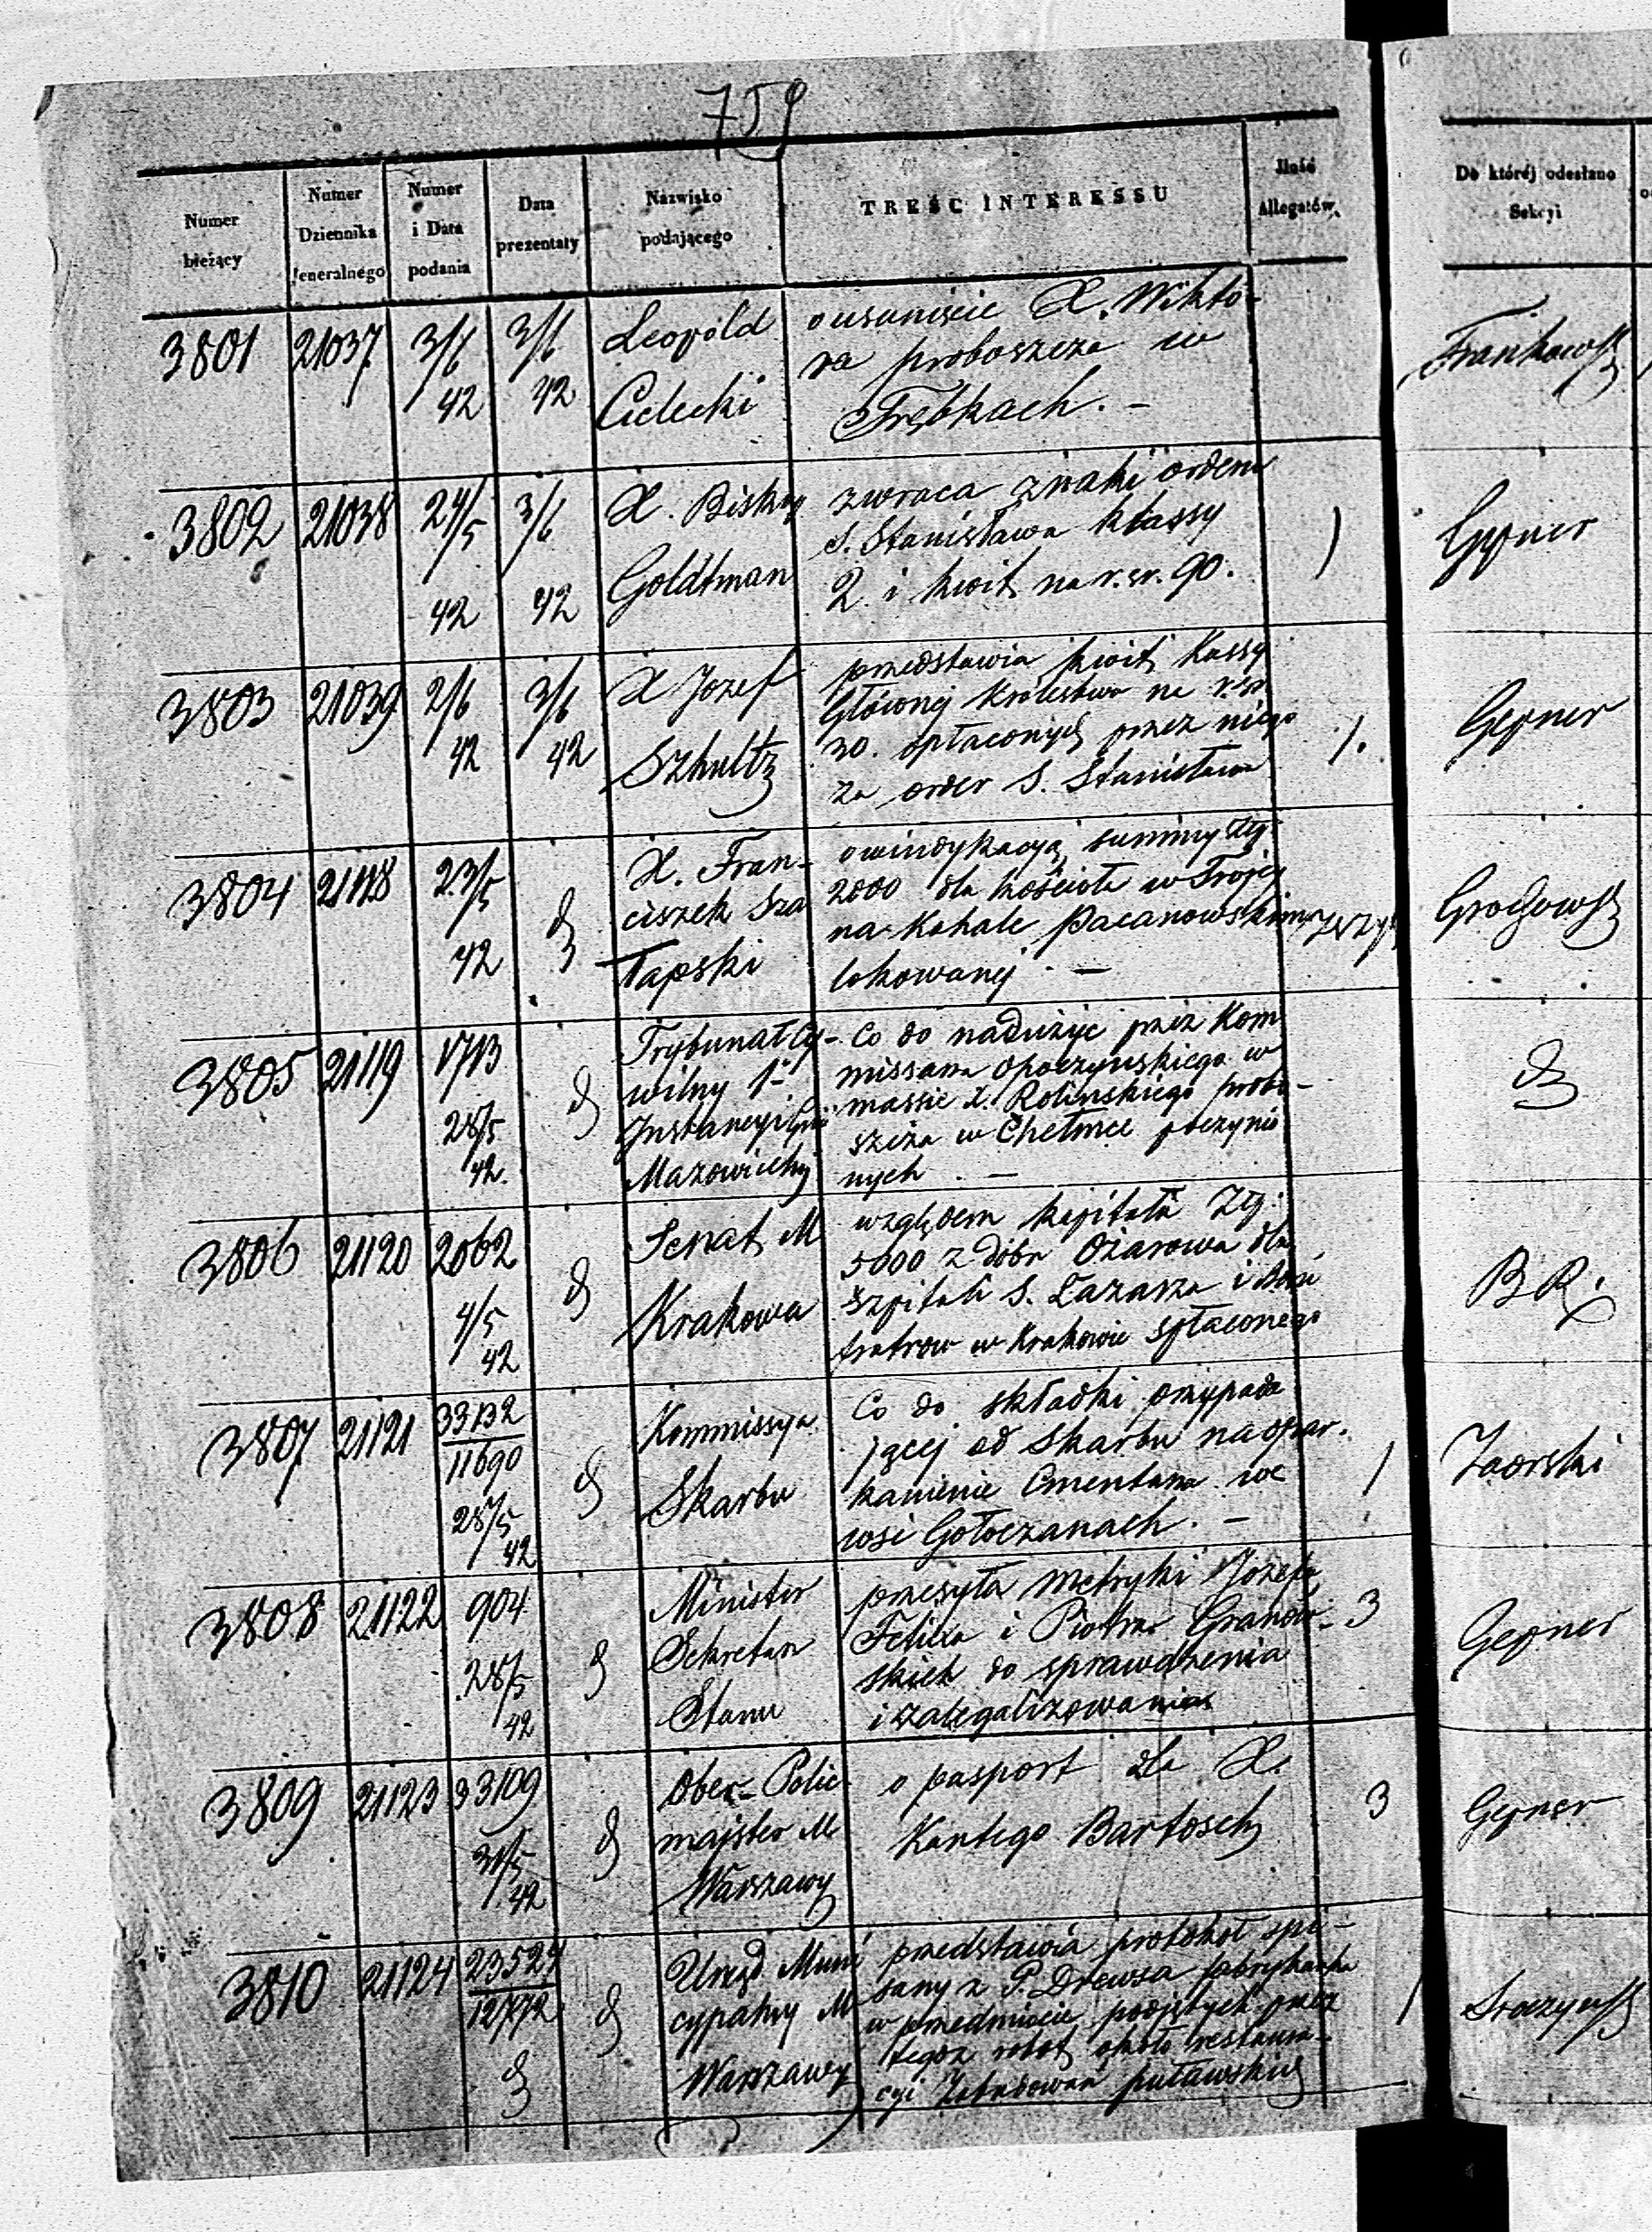 759
Numer bieżący
Numer Dziennika Jeneralnego
Numer i Data podania
Data prezentaty
Nazwisko podającego
TREŚĆ INTERESSU
Ilość Allegatów.
Do któréj odesłano Sekcyi
3801 21037 3/6 42 3/6 42
Leopold
Cielecki
o usunięcie X. Wikto-
ra proboszcza w
Trębkach. -
3802 21038 24/5 42 3/6 42
X. Biskup
Goldtman
zwraca znaki orderu
S. Stanisława klassy
2 i kwit na r. sr. 90.
1
Gepner
3803 21039 2/6 42 3/6 42
X Jozef
Szhultz
przedstawia kwit Kassy
Głównej Krolestwa na r. sr.
30. opłaconych przez niego
za order S. Stanisława
1.
Gepner
3804 21118 23/5 42
X. Fran-
ciszek Sza
łapski
o windykacyą summy Złp:
2000 dla kościoła w Trojcy
na Kahale Pacanowskim
lokowanej. -
3805 21119 1713 28/5 42.
Trybunał Cy-
wilny 1ej
Instancyi Gub
Mazowieckiej
Co do nadużyć przez Kom
missarza Opoczynskiego w
massie X. Rolinskiego probo-
szcza w Chełmce poczynio
nych. -
3806 21120 2062 4/5 42
Senat M
Krakowa
względem kapitału Złp:
5000 z dóbr Ożarowa dla
szpitali S. Łazarza i Boni
fratrow w Krakowie spłaconego
B R.
3807 21121 33132 11690 28/5 42
Kommissya
Skarbu
Co do składki przypada
jącej od Skarbu na opar.
kanienie Cmentarza we
wsi Gołoczanach. -
1
Zaorski
3808 21122 904 28/5 42
Minister
Sekretarz
Stanu
przesyła metryki Józefa
Felixa i Piotra Granow-
skich do sprawdzenia
i zalegalizowania
3
Gepner
3809 21123 33109 31/5 42
Ober-Polic
majster M
Warszawy
o pasport dla X.
Kantego Bartosch
3
Gepner
3810 21124 23524 12772
Urząd Muni
cypalny M
Warszawy
przedstawia protokół spi-
sany z P. Drewsa fabrykanta
w przedmiocie podjętych przez
tegoż robot około restaura-
cyi Zabudowań puławskich
1